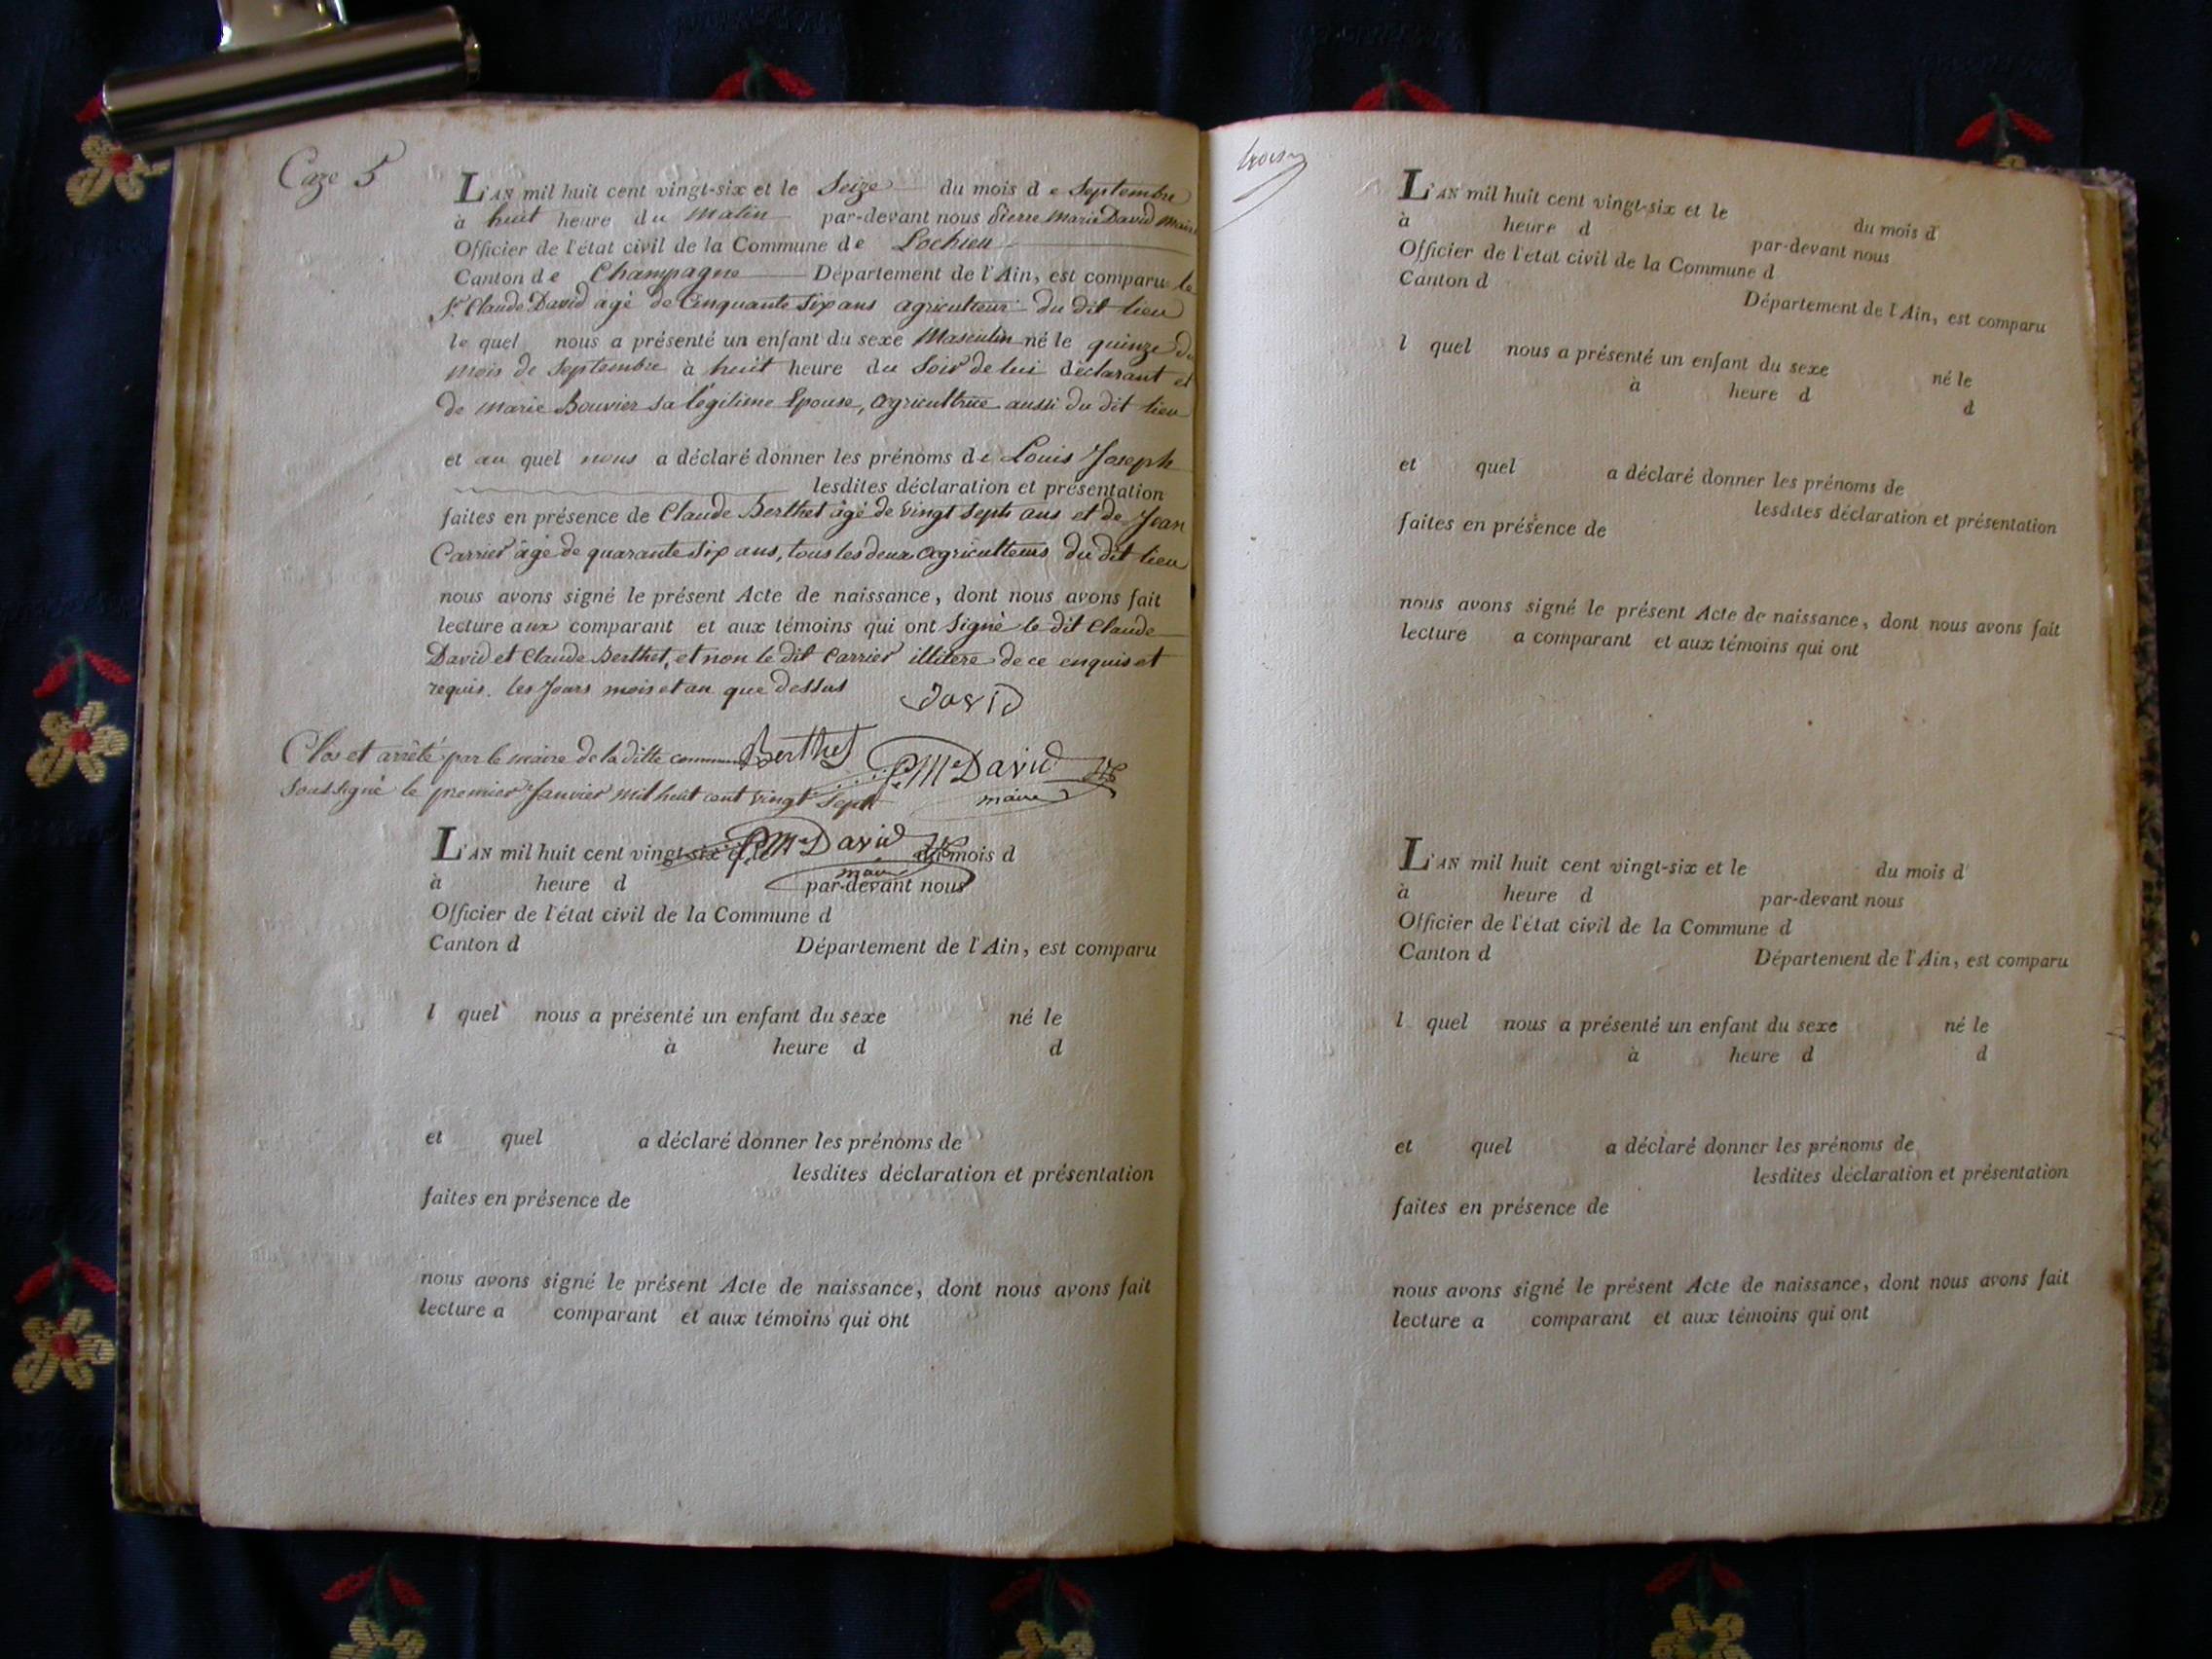 Caze 5
L'AN mil huit cent vingt-six et le Seize du mois de Septembre
à huit heure du Matin par-devant nous Pierre Marie David Maire
Officier de l'état civil de la Commune de Lochieu
Canton de Champagne Département de l'Ain, est comparu le
Sr Claude David agé de Cinquante Six ans agriculteur du dit lieu
le quel nous a présenté un enfant du sexe Masculin né le quinze du
mois de Septembre à huit heure du Soir de lui déclarant et
de Marie Bouvier sa légitime Epouse, agricultrice aussi du dit lieu
et au quel nous a déclaré donner les prénoms de Louis Joseph
lesdites déclaration et présentation
faites en présence de Claude Berthet âgé de vingt Sept ans et de Jean
Carrier âgé de quarante Six ans, tous les deux agriculteurs du dit lieu
nous avons signé le présent Acte de naissance, dont nous avons fait
lecture aux comparant et aux témoins qui ont Signé le dit Claude
David et Claude Berthet, et non le dit Carrier illitere de ce enquis et
requis. les Jours mois et an que dessus
David
Clos et arrêté par le maire de la ditte commune Berthet P. Me David
Soussigné le premier Janvier mil huit cent vingt Sept maire
P. Me David
maire
L'AN mil huit cent vingt-six et le du mois d
à heure d par-devant nous
Officier de l'état civil de la Commune d
Canton d Département de l'Ain, est comparu
l quel nous a présenté un enfant du sexe né le
à heure d d
et quel a déclaré donner les prénoms de
lesdites déclaration et présentation
faites en présence de
nous avons signé le présent Acte de naissance, dont nous avons fait
lecture a comparant et aux témoins qui ont
trois
L'AN mil huit cent vingt-six et le du mois d
à heure d par-devant nous
Officier de l'état civil de la Commune d
Canton d Département de l'Ain, est comparu
l quel nous a présenté un enfant du sexe né le
à heure d d
et quel a déclaré donner les prénoms de
lesdites déclaration et présentation
faites en présence de
nous avons signé le présent Acte de naissance, dont nous avons fait
lecture a comparant et aux témoins qui ont
L'AN mil huit cent vingt-six et le du mois d
à heure d par-devant nous
Officier de l'état civil de la Commune d
Canton d Département de l'Ain, est comparu
l quel nous a présenté un enfant du sexe né le
à heure d d
et quel a déclaré donner les prénoms de
lesdites déclaration et présentation
faites en présence de
nous avons signé le présent Acte de naissance, dont nous avons fait
lecture a comparant et aux témoins qui ont